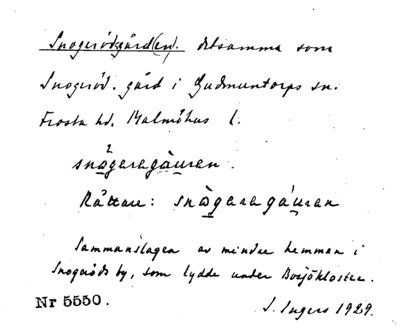 Snogerödgård(en). detsamma som
Snogeröd. gård i Gudmuntorps sn.
Frosta hd. Malmöhus l.
snǫ̀garagàu̱ran.
Rättare: snǫ̀garagáu̱ran
Sammanslagen av mindre hemman i
Snogeröds by, som lydde under Bosjökloster.
Nr 5550. I. Ingers 1929.